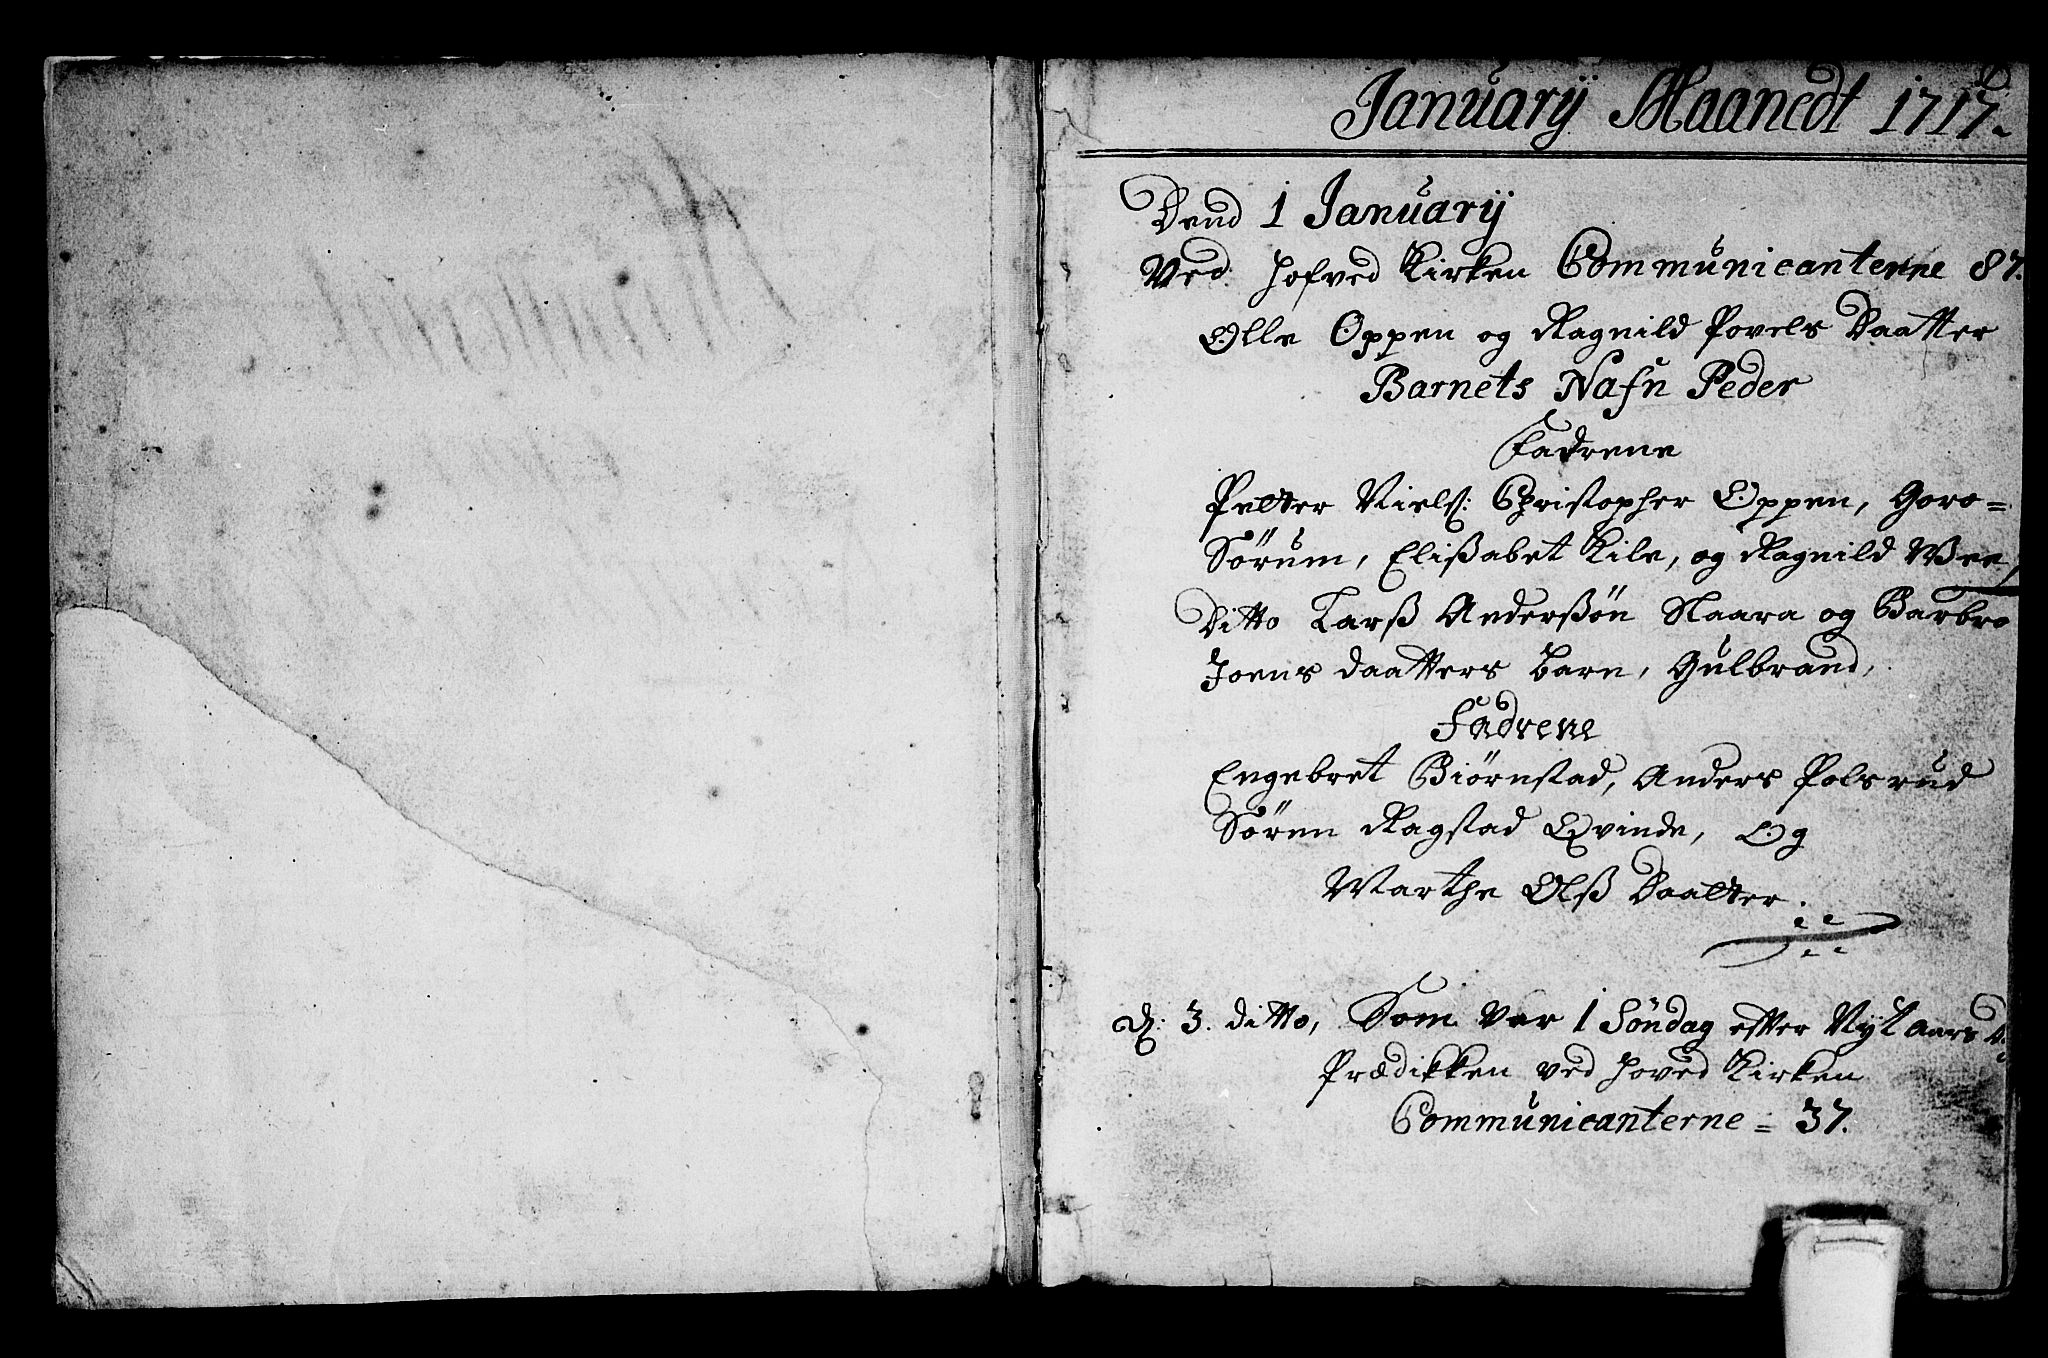 Januarij Maanedt 1717.
Dend 1 Januarij
Ved Hofved Kirken Communicanterne 87.
Olle Oppen og Ragnild Povels Daatter
Barnets Nafn Peder
Fadrene
Petter Niels: Christopher Oppen, Goro=
Sørum, Elißabet Kile, og Ragnild Wee,
Ditto Larß Anderßøn Naara og Barbro
Joens daatters barn, Gulbrand,
Fadrene
Engebret Biørnstad, Anders Polsrud
Søren Ragstad Qvinde, Og
Marthe Olß Daatter.
d: 3. ditto, Som var 1 Søndag efter Nyt aars D:
Prædikken ved Hoved Kirken
Communicanterne = 37.